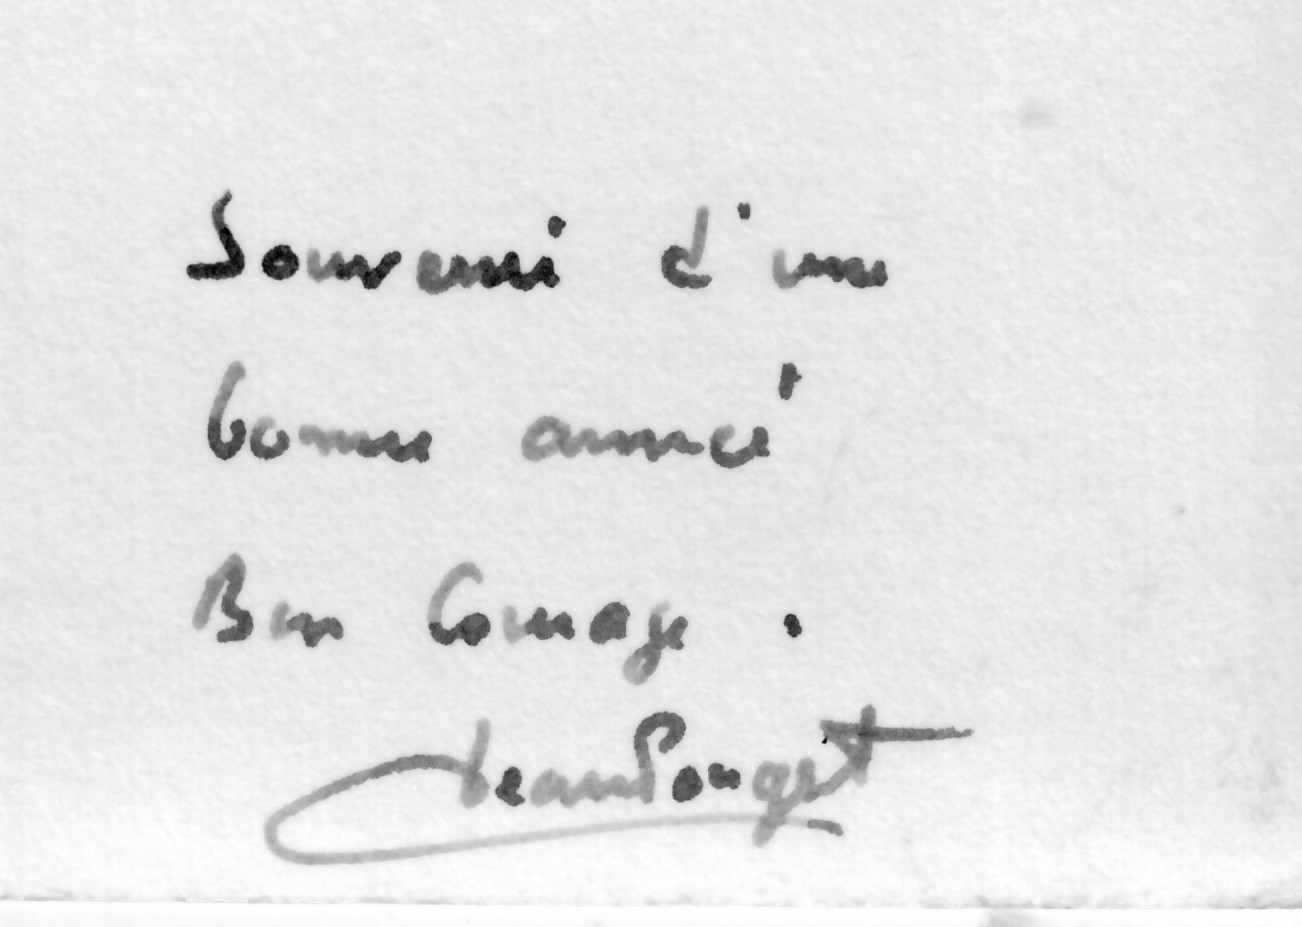 Souvenir d'une
bonne année
Bon Courage.
Jean Pouget